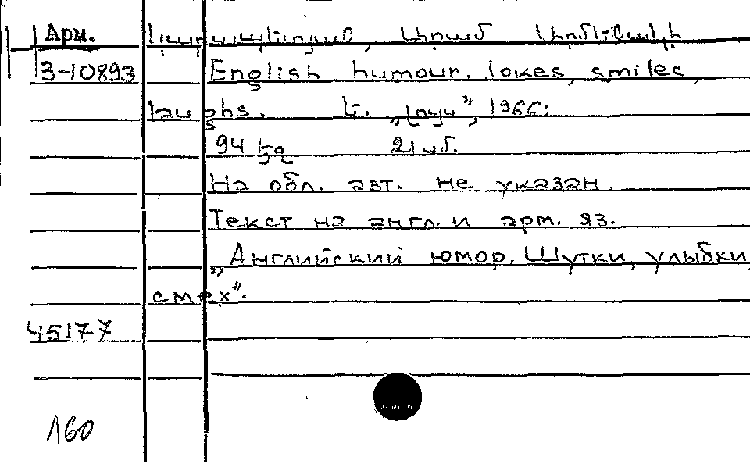 Арм.
3-10893 English humour. Jokes, smiles,
laughs. Ե. „Լույս”, 1966:
94 էջ 21 սմ.
На обл. авт. не указан.
Текст на англ. и арм. яз.
„Английский юмор. Шутки, улыбки,
смех”.
45177
160